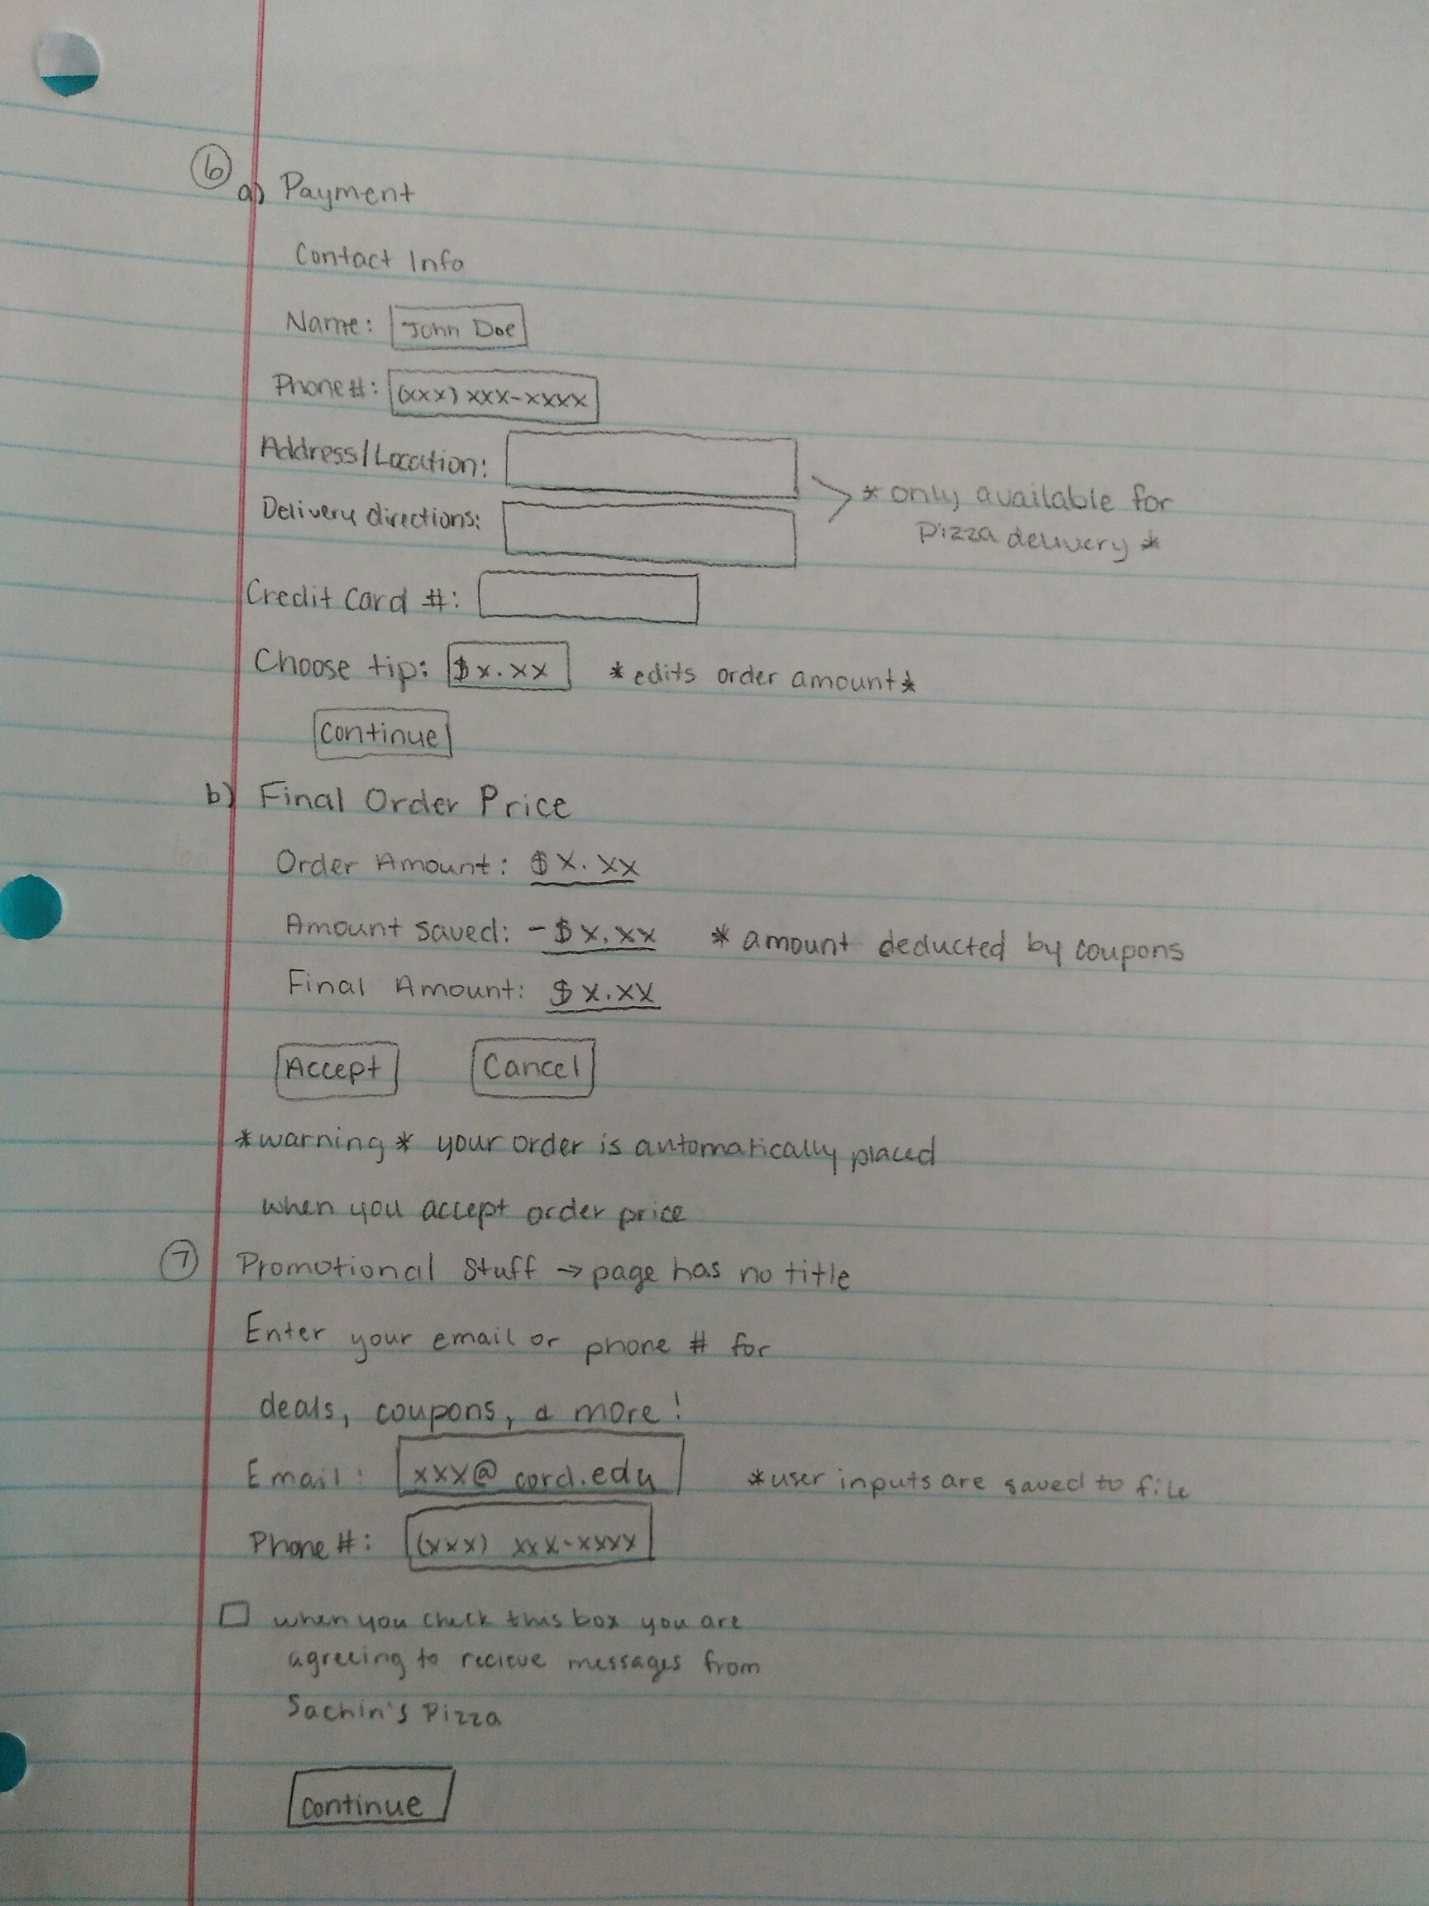 6
a) Payment
Contact Info
Name: John Doe
Phone #: (xxx) xxx-xxxx
Address/Location:
Delivery directions:
*only available for
Pizza delivery*
Credit Card #:
Choose tip: $x.xx *edits order amount*
Continue
b) Final Order Price
Order Amount: $x.xx
Amount saved: -$x.xx * amount deducted by coupons
Final Amount: $x.xx
Accept Cancel
*warning* your order is automatically placed
when you accept order price
7 Promotional Stuff → page has no title
Enter your email or phone # for
deals, coupons, & more!
Email: xxx@cord.edu *user inputs are saved to file
Phone #: (xxx) xxx-xxxx
when you check this box you are
agreeing to recieve messages from
Sachin's Pizza
Continue